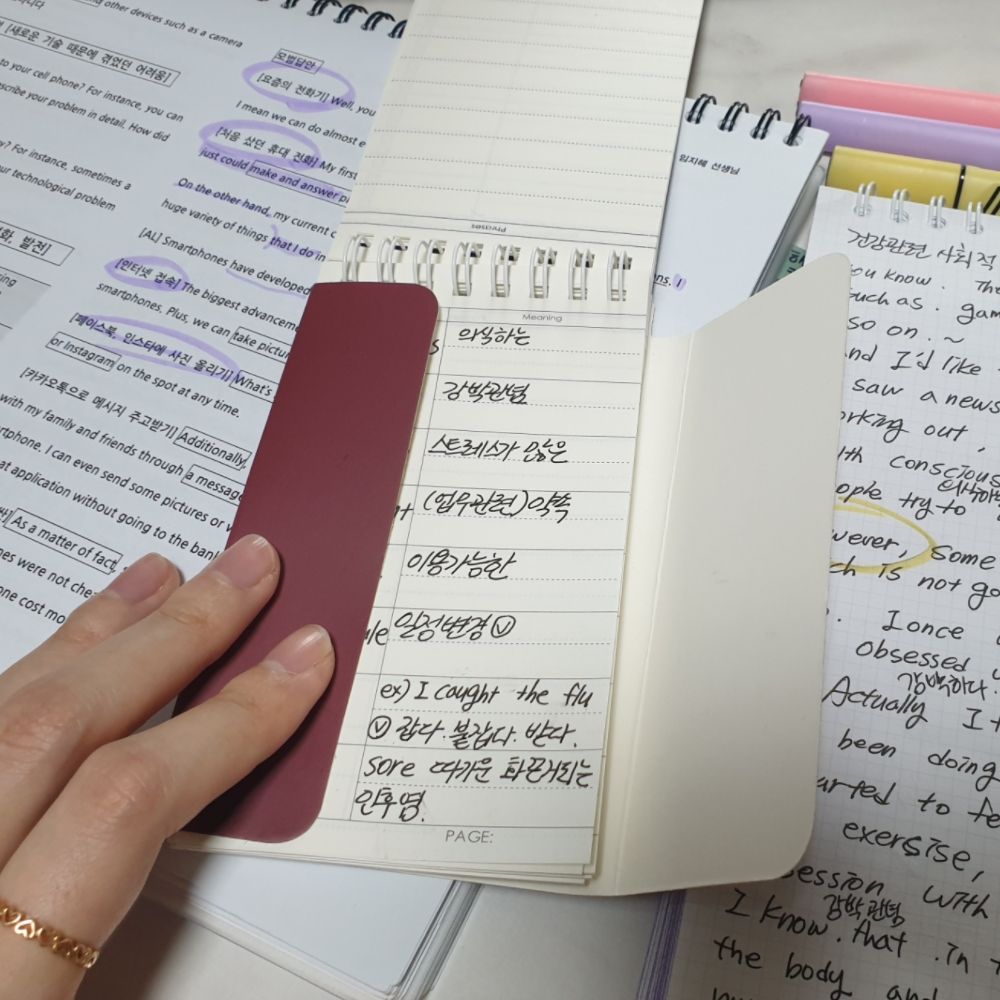 ing other devices such as a camera
[새로운 기술 때문에 겪었던 어려움]
to your cell phone? For instance, you can
describe your problem in detail. How did
y? For instance, sometimes a
ur technological problem
화, 발전]
모범답안
[요즘의 전화기] Well, you
I mean we can do almost e
[처음 샀던 휴대 전화] My first
just could make and answer p
On the other hand, my current c
huge variety of things that I do in
[AL] Smartphones have developed
[인터넷 접속] The biggest advancem
smartphones. Plus, we can take pictur
[페이스북, 인스타에 사진 올리기] What's
or Instagram on the spot at any time.
[카카오톡으로 메시지 주고받기] Additionally,
with my family and friends through a message
rtphone. I can even send some pictures or v
at application without going to the bank
As a matter of fact,
nes were not che
one cost mo
Phrases
Meaning
의식하는
강박관념
스트레스가 많은
(업무관련)약속
이용가능한
일정변경 ⓥ
ex) I caught the flu
ⓥ 잡다. 붙잡다. 받다.
sore 따가운 화끈거리는
인후염.
PAGE:
임지혜 선생님
ns. I
건강관련 사회적
You know. The
such as. gam
so on. ~
nd I'd like
saw a news
orking out,
th conscious
ople try to
wever, some
ch is not go
I once
obsessed
강박하다.
Actually I
been doing
arted to fe
exersise,
session with
강박관념
I know. that. in
the body and